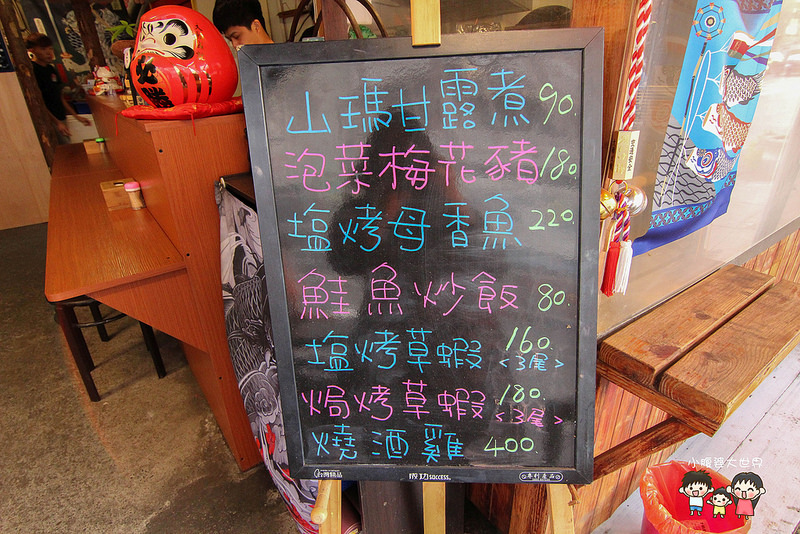 山瑪甘露煮 90.
泡菜梅花豬 180
塩烤母香魚 220.
鮭魚炒飯 80.
塩烤草蝦 160.
<3尾>
焗烤草蝦 180.
<3尾>
燒酒雞 400
成功 SUCCESS.
專利產品
小腹婆大世界